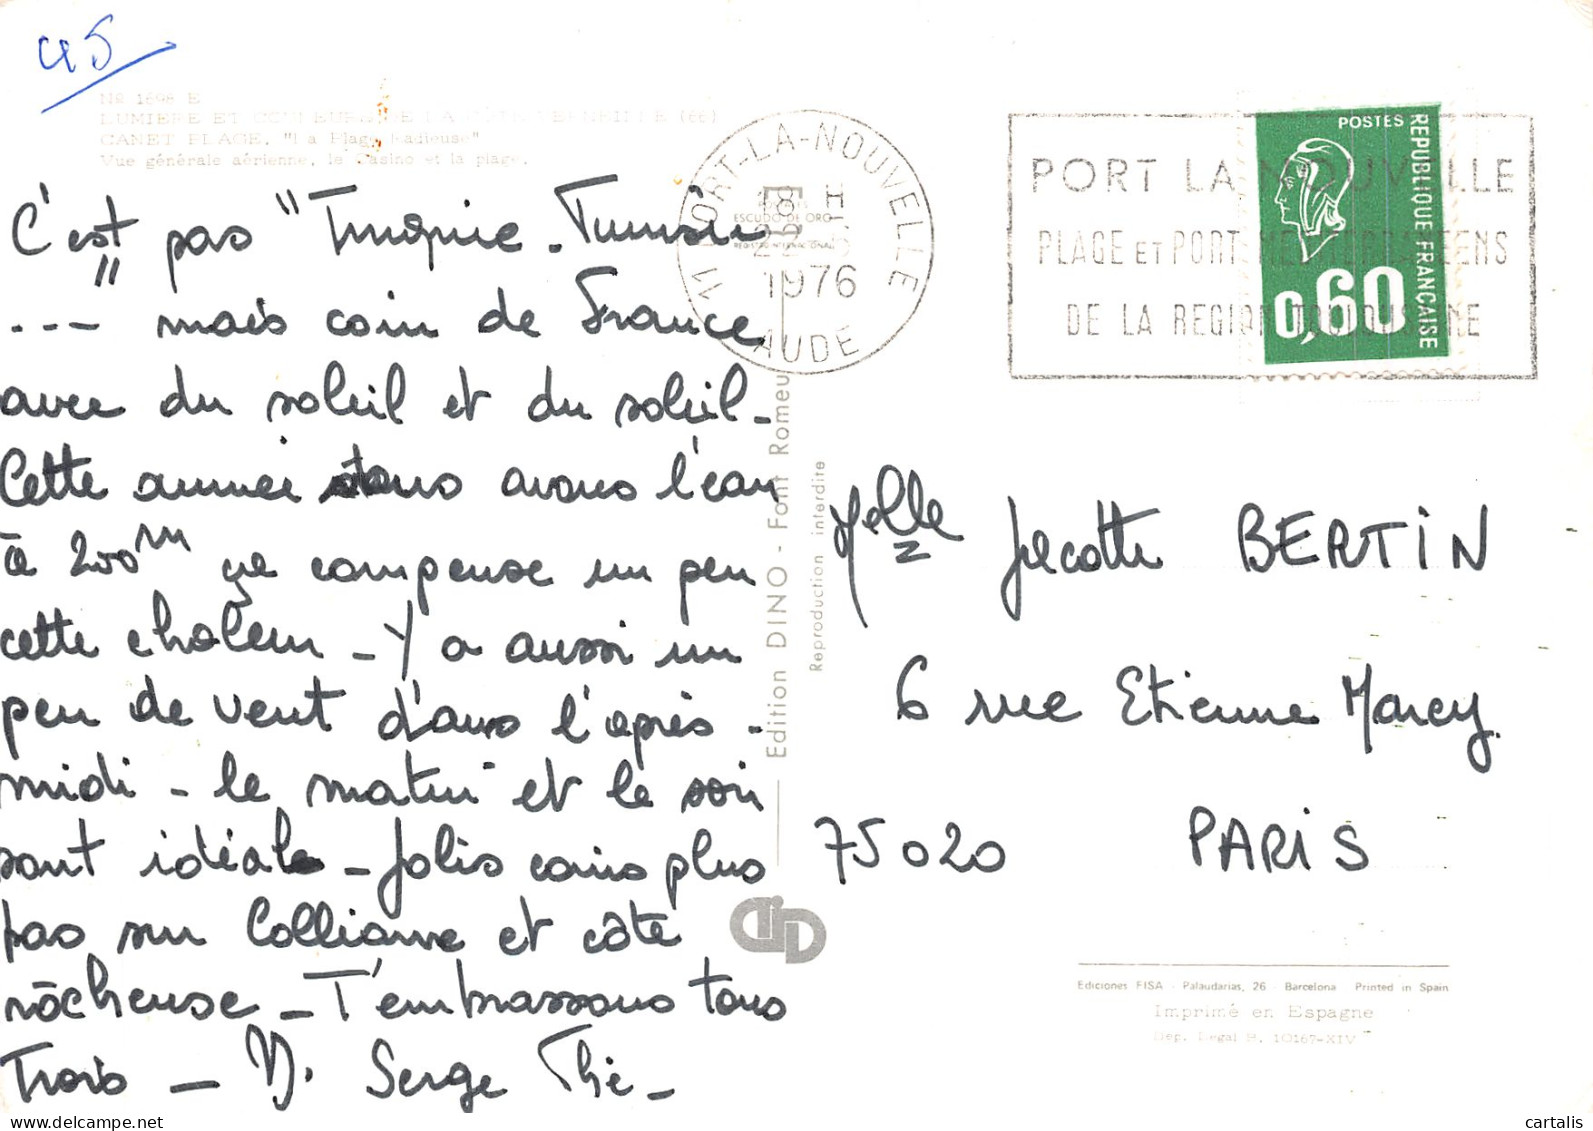 45
Nº 1698 E
LUMIERE ET COULEURS DE LA COTE VERMEILLE (66)
CANET PLAGE, "La Plage Radieuse"
Vue générale aérienne, le Casino et la plage.
C'est pas "Turquie - Tunisie
" --- mais coin de France
avec du soleil et du soleil -
Cette année nous avons l'eau
à 200m ça compense un peu
cette chaleur - Y a aussi un
peu de vent dans l'après -
midi - le matin et le soir
sont idéals - Jolis coins plus
bas sur Collioure et côte
rocheuse - T'embrassons tous
Trois - D. Serge Thé -
11 PORT-LA-NOUVELLE
18 H
1976
AUDE
ESCUDO DE ORO
REGISTRO INTERNACIONAL
PORT LA NOUVELLE
PLAGE ET PORT MEDITERRANEENS
DE LA REGION TOULOUSAINE
POSTES
REPUBLIQUE FRANÇAISE
0,60
Edition DINO - Font Romeu
Reproduction interdite
Melle Jecotte BERTIN
6 rue Etienne Marcy
75020 PARIS
Ediciones FISA - Palaudarias, 26 - Barcelona Printed in Spain
Imprimé en Espagne
Dep. Legal B. 10167-XIV
cartalis
delcampe.net